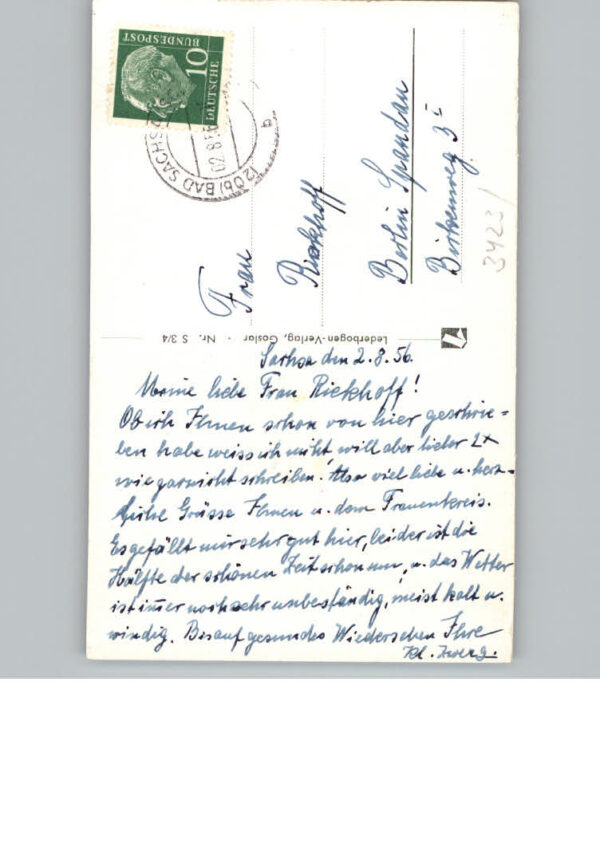 DEUTSCHE
BUNDESPOST
10
(20b) BAD SACHSA
02.8.56
b
Frau
Riekhoff
Berlin Spandau
Birkenweg 3
3423/
Lederbogen-Verlag, Goslar · Nr. S 3/4
Sachsa den 2.8.56.
Meine liebe Frau Riekhoff!
Ob ich Ihnen schon von hier geschrie-
ben habe weiss ich nicht, will aber lieber 2x
wie garnicht schreiben. Also viel liebe u. herz-
liche Grüsse Ihnen u. dem Frauenkreis.
Es gefällt mir sehr gut hier, leider ist die
Hälfte der schönen Zeit schon um, u. das Wetter
ist im̅er noch sehr unbeständig, meist kalt u.
windig. Bis auf gesundes Wiedersehen Ihre
Kl. Zwerg.